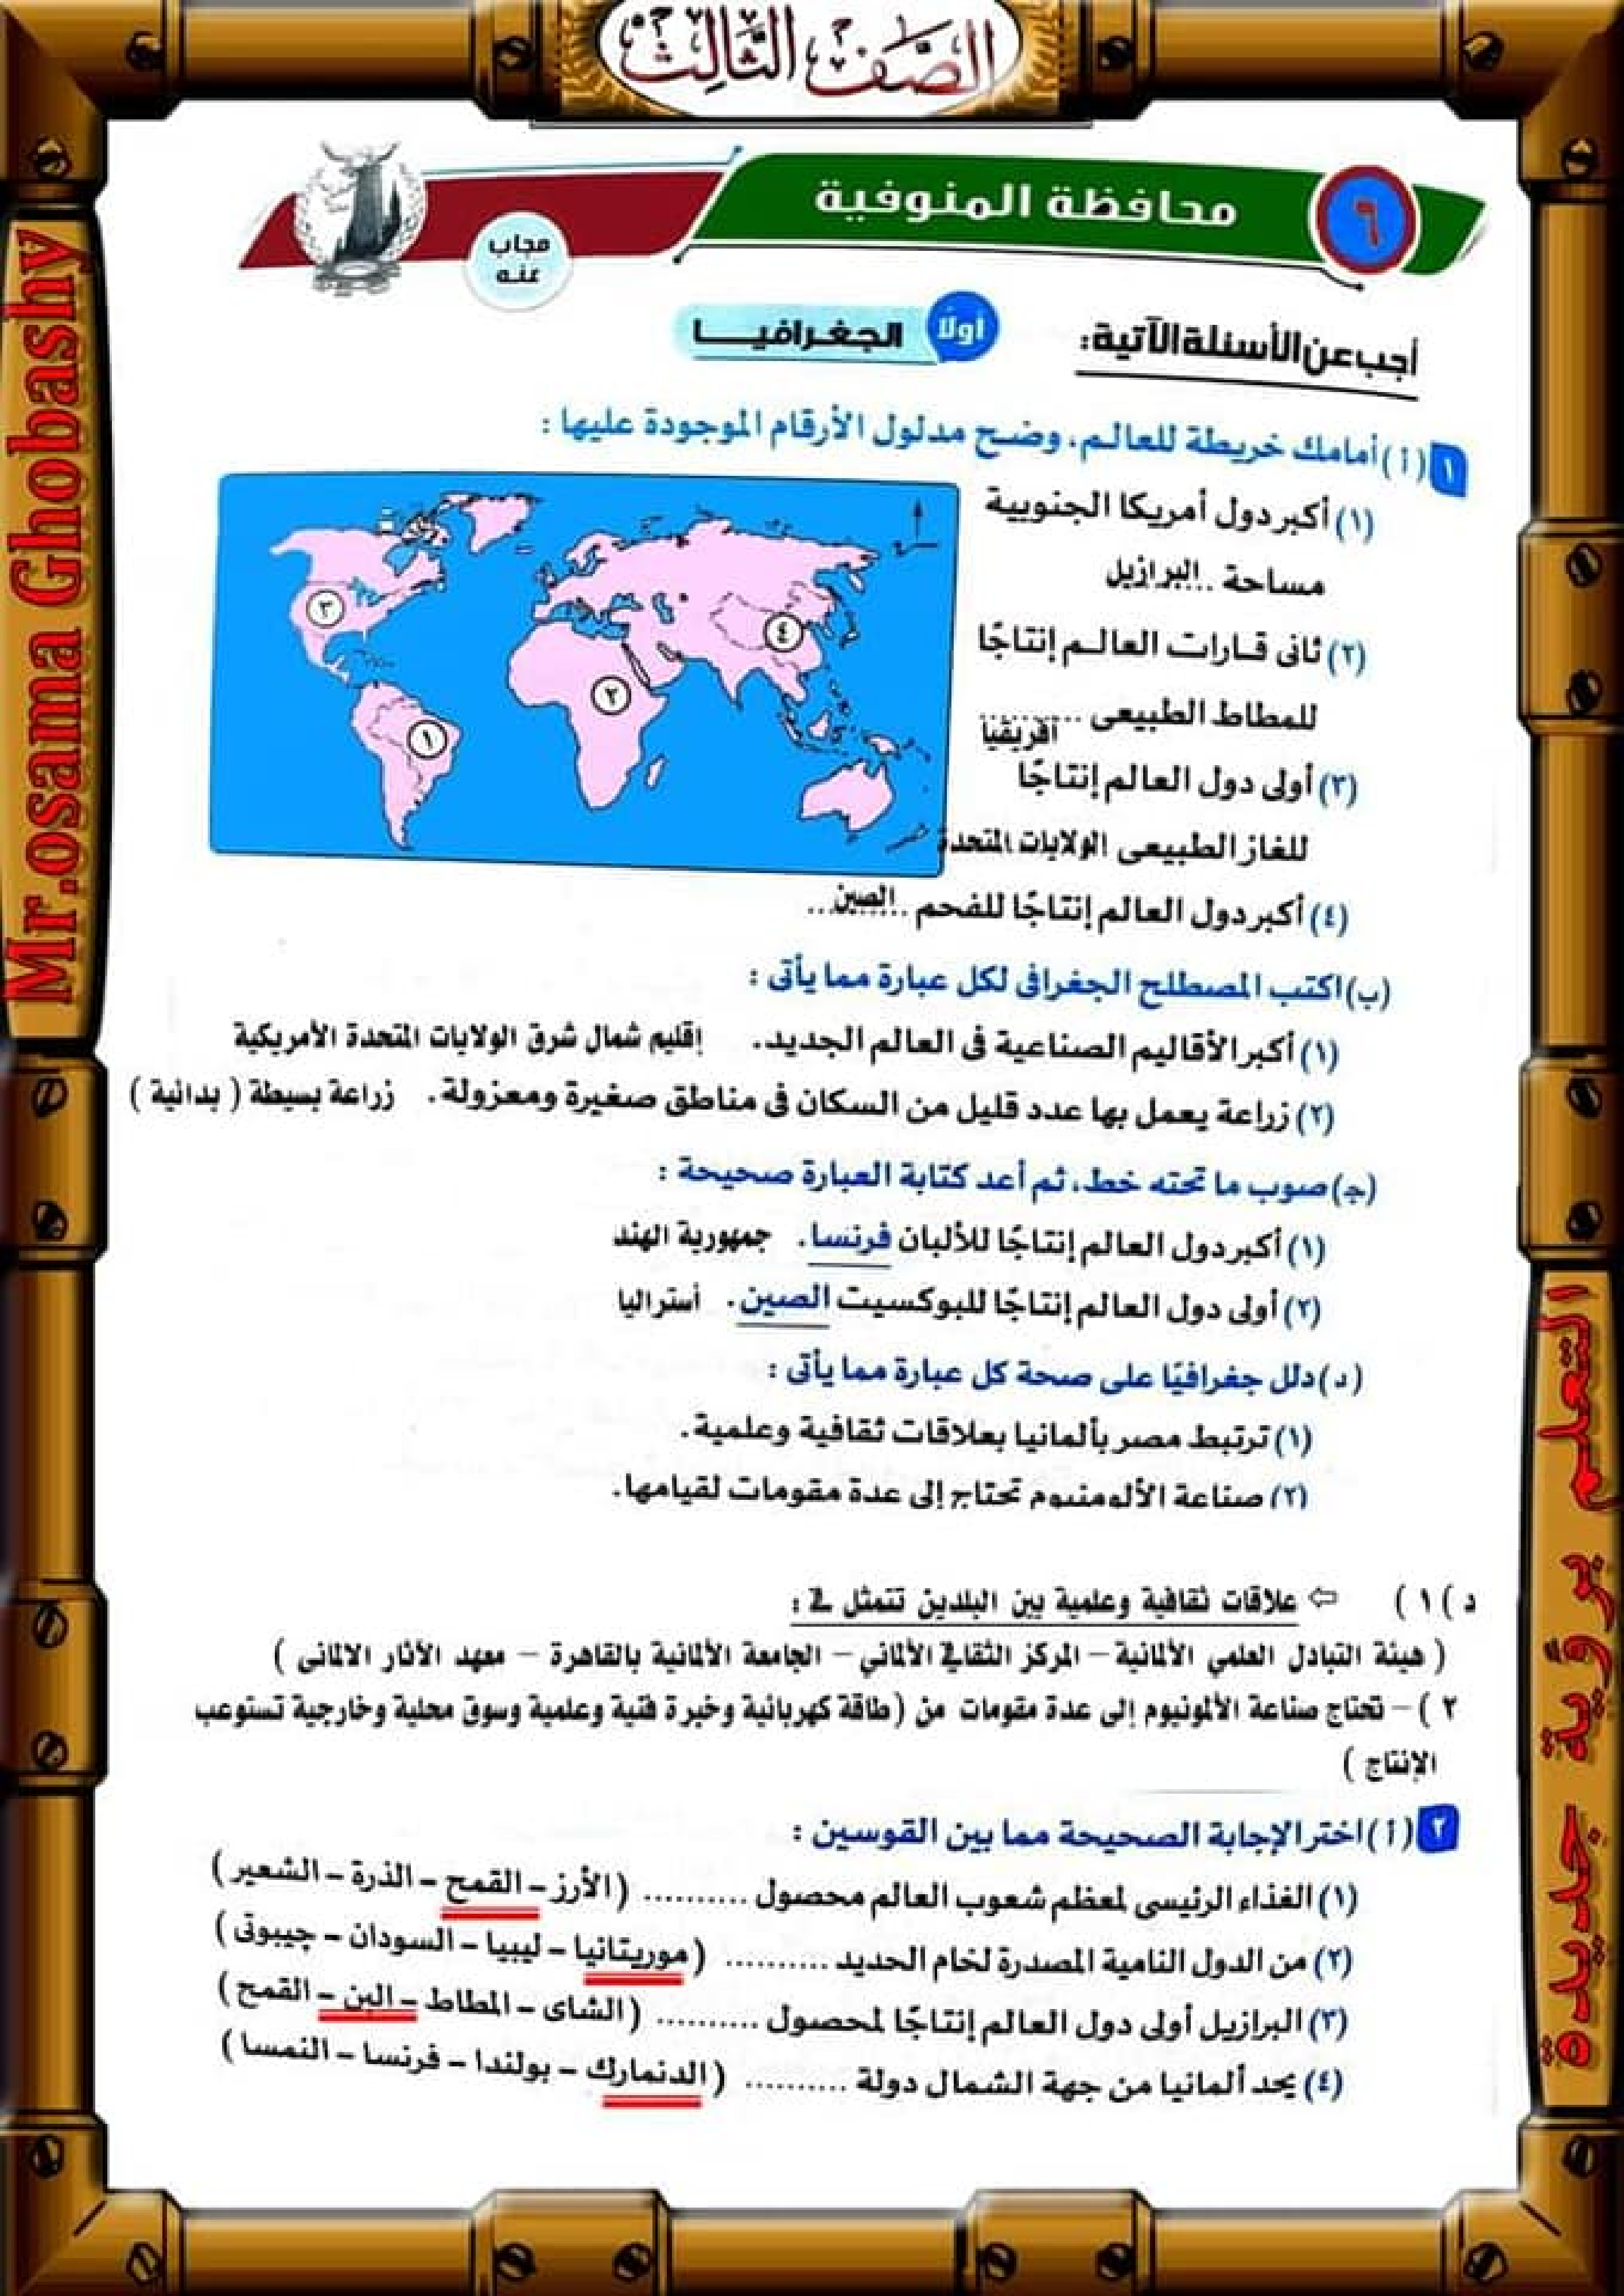 الصف الثالث
٦ محافظة المنوفية
مجاب عنه
أجب عن الأسئلة الآتية:
أولًا الجغرافيا
١ (أ) أمامك خريطة للعالم، وضح مدلول الأرقام الموجودة عليها :
(١) أكبر دول أمريكا الجنوبية
مساحة ..البرازيل
(٢) ثانى قارات العالم إنتاجًا
للمطاط الطبيعى ........ أفريقيا
(٣) أولى دول العالم إنتاجًا
للغاز الطبيعى الولايات المتحدة
(٤) أكبر دول العالم إنتاجًا للفحم ..الصين..
١
٢
٣
٤
(ب) اكتب المصطلح الجغرافى لكل عبارة مما يأتى :
(١) أكبر الأقاليم الصناعية فى العالم الجديد. إقليم شمال شرق الولايات المتحدة الأمريكية
(٢) زراعة يعمل بها عدد قليل من السكان فى مناطق صغيرة ومعزولة. زراعة بسيطة ( بدائية )
(ج) صوب ما تحته خط، ثم أعد كتابة العبارة صحيحة :
(١) أكبر دول العالم إنتاجًا للألبان فرنسا. جمهورية الهند
(٢) أولى دول العالم إنتاجًا للبوكسيت الصين. أستراليا
(د) دلل جغرافيًا على صحة كل عبارة مما يأتى :
(١) ترتبط مصر بألمانيا بعلاقات ثقافية وعلمية.
(٢) صناعة الألومنيوم تحتاج إلى عدة مقومات لقيامها.
د ) ١ ) ⇦ علاقات ثقافية وعلمية بين البلدين تتمثل في :
( هيئة التبادل العلمي الألمانية – المركز الثقافي الألماني – الجامعة الألمانية بالقاهرة – معهد الأثار الالمانى )
٢ ) – تحتاج صناعة الألمونيوم إلى عدة مقومات من (طاقة كهربائية وخبرة فنية وعلمية وسوق محلية وخارجية تستوعب
الإنتاج )
٢ (أ) اختر الإجابة الصحيحة مما بين القوسين :
(١) الغذاء الرئيسى لمعظم شعوب العالم محصول .......... (الأرز – القمح – الذرة – الشعير)
(٢) من الدول النامية المصدرة لخام الحديد .......... (موريتانيا – ليبيا – السودان – جيبوتى)
(٣) البرازيل أولى دول العالم إنتاجًا لمحصول .......... (الشاى – المطاط – البن – القمح)
(٤) يحد ألمانيا من جهة الشمال دولة .......... (الدنمارك – بولندا – فرنسا – النمسا)
Mr.osama Ghobashy
التعلم برؤية جديدة